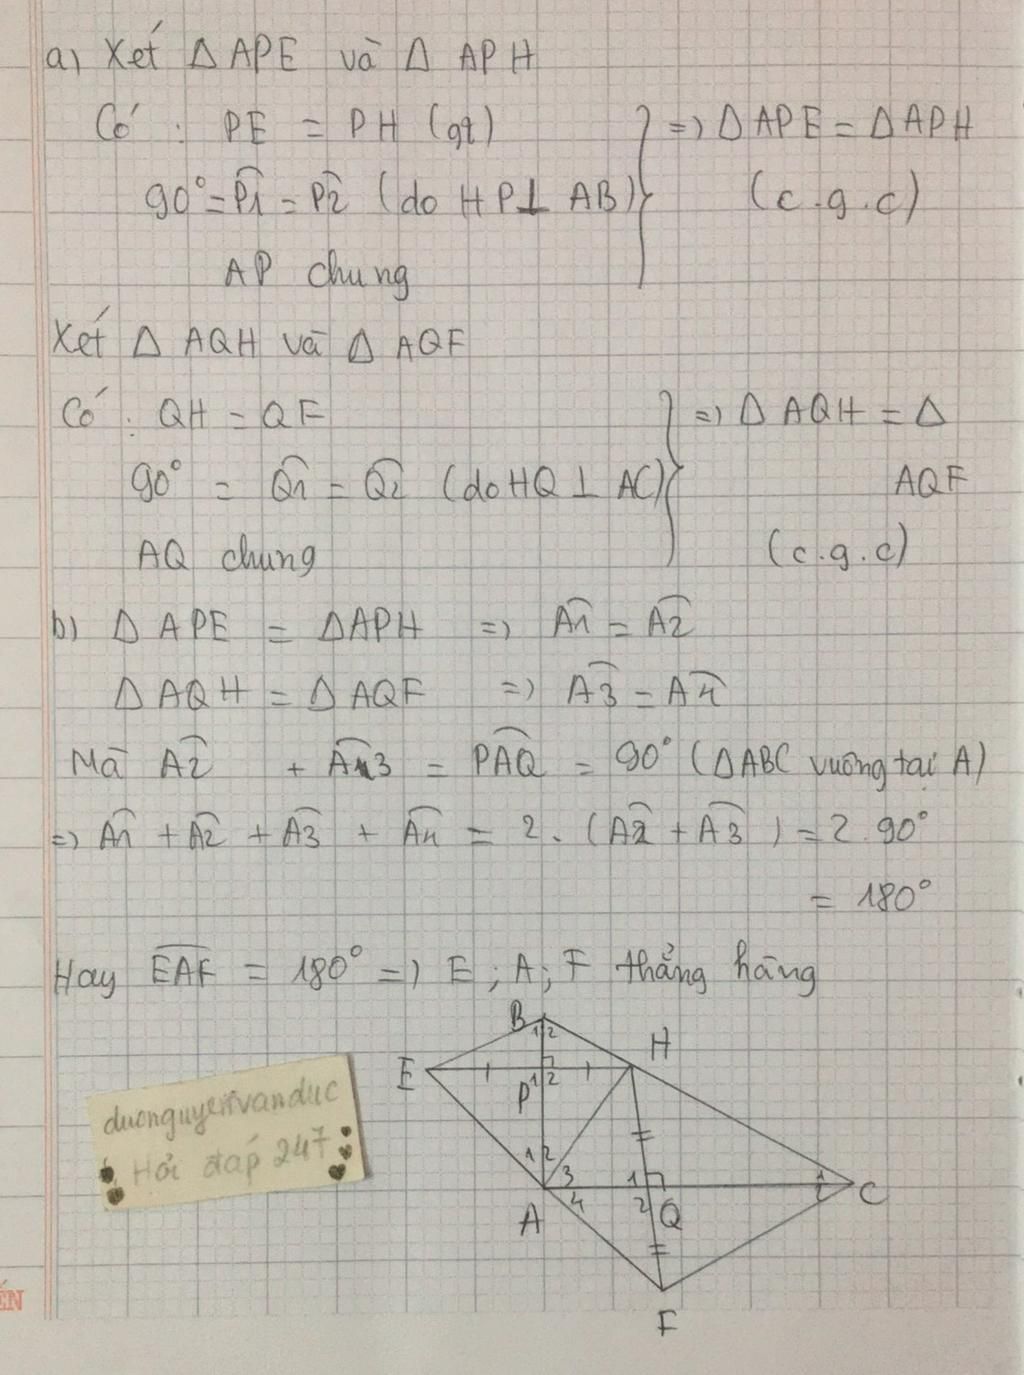 a) Xét Δ APE và Δ APH
Có : PE = PH (gt)
90° = P̂1 = P̂2 (do HP⊥ AB)
AP chung
=> Δ APE = Δ APH
(c.g.c)
Xét Δ AQH và Δ AQF
Có : QH = QF
90° = Q̂1 = Q̂2 (do HQ ⊥ AC)
AQ chung
=> Δ AQH = Δ
AQF
(c.g.c)
b) Δ APE = Δ APH => Â1 = Â2
Δ AQH = Δ AQF => Â3 = Â4
Mà Â2 + Â3 = PÂQ = 90° (ΔABC vuông tại A)
=> Â1 + Â2 + Â3 + Â4 = 2. (Â2 + Â3) = 2.90°
= 180°
Hay EÂF = 180° => E ; A ; F thẳng hàng
B
1 2
H
E
P
1 2
duonguyenvanduc
Hỏi đáp 247
1 2
3
4
A
1
2
Q
1
2
C
F
ẾN